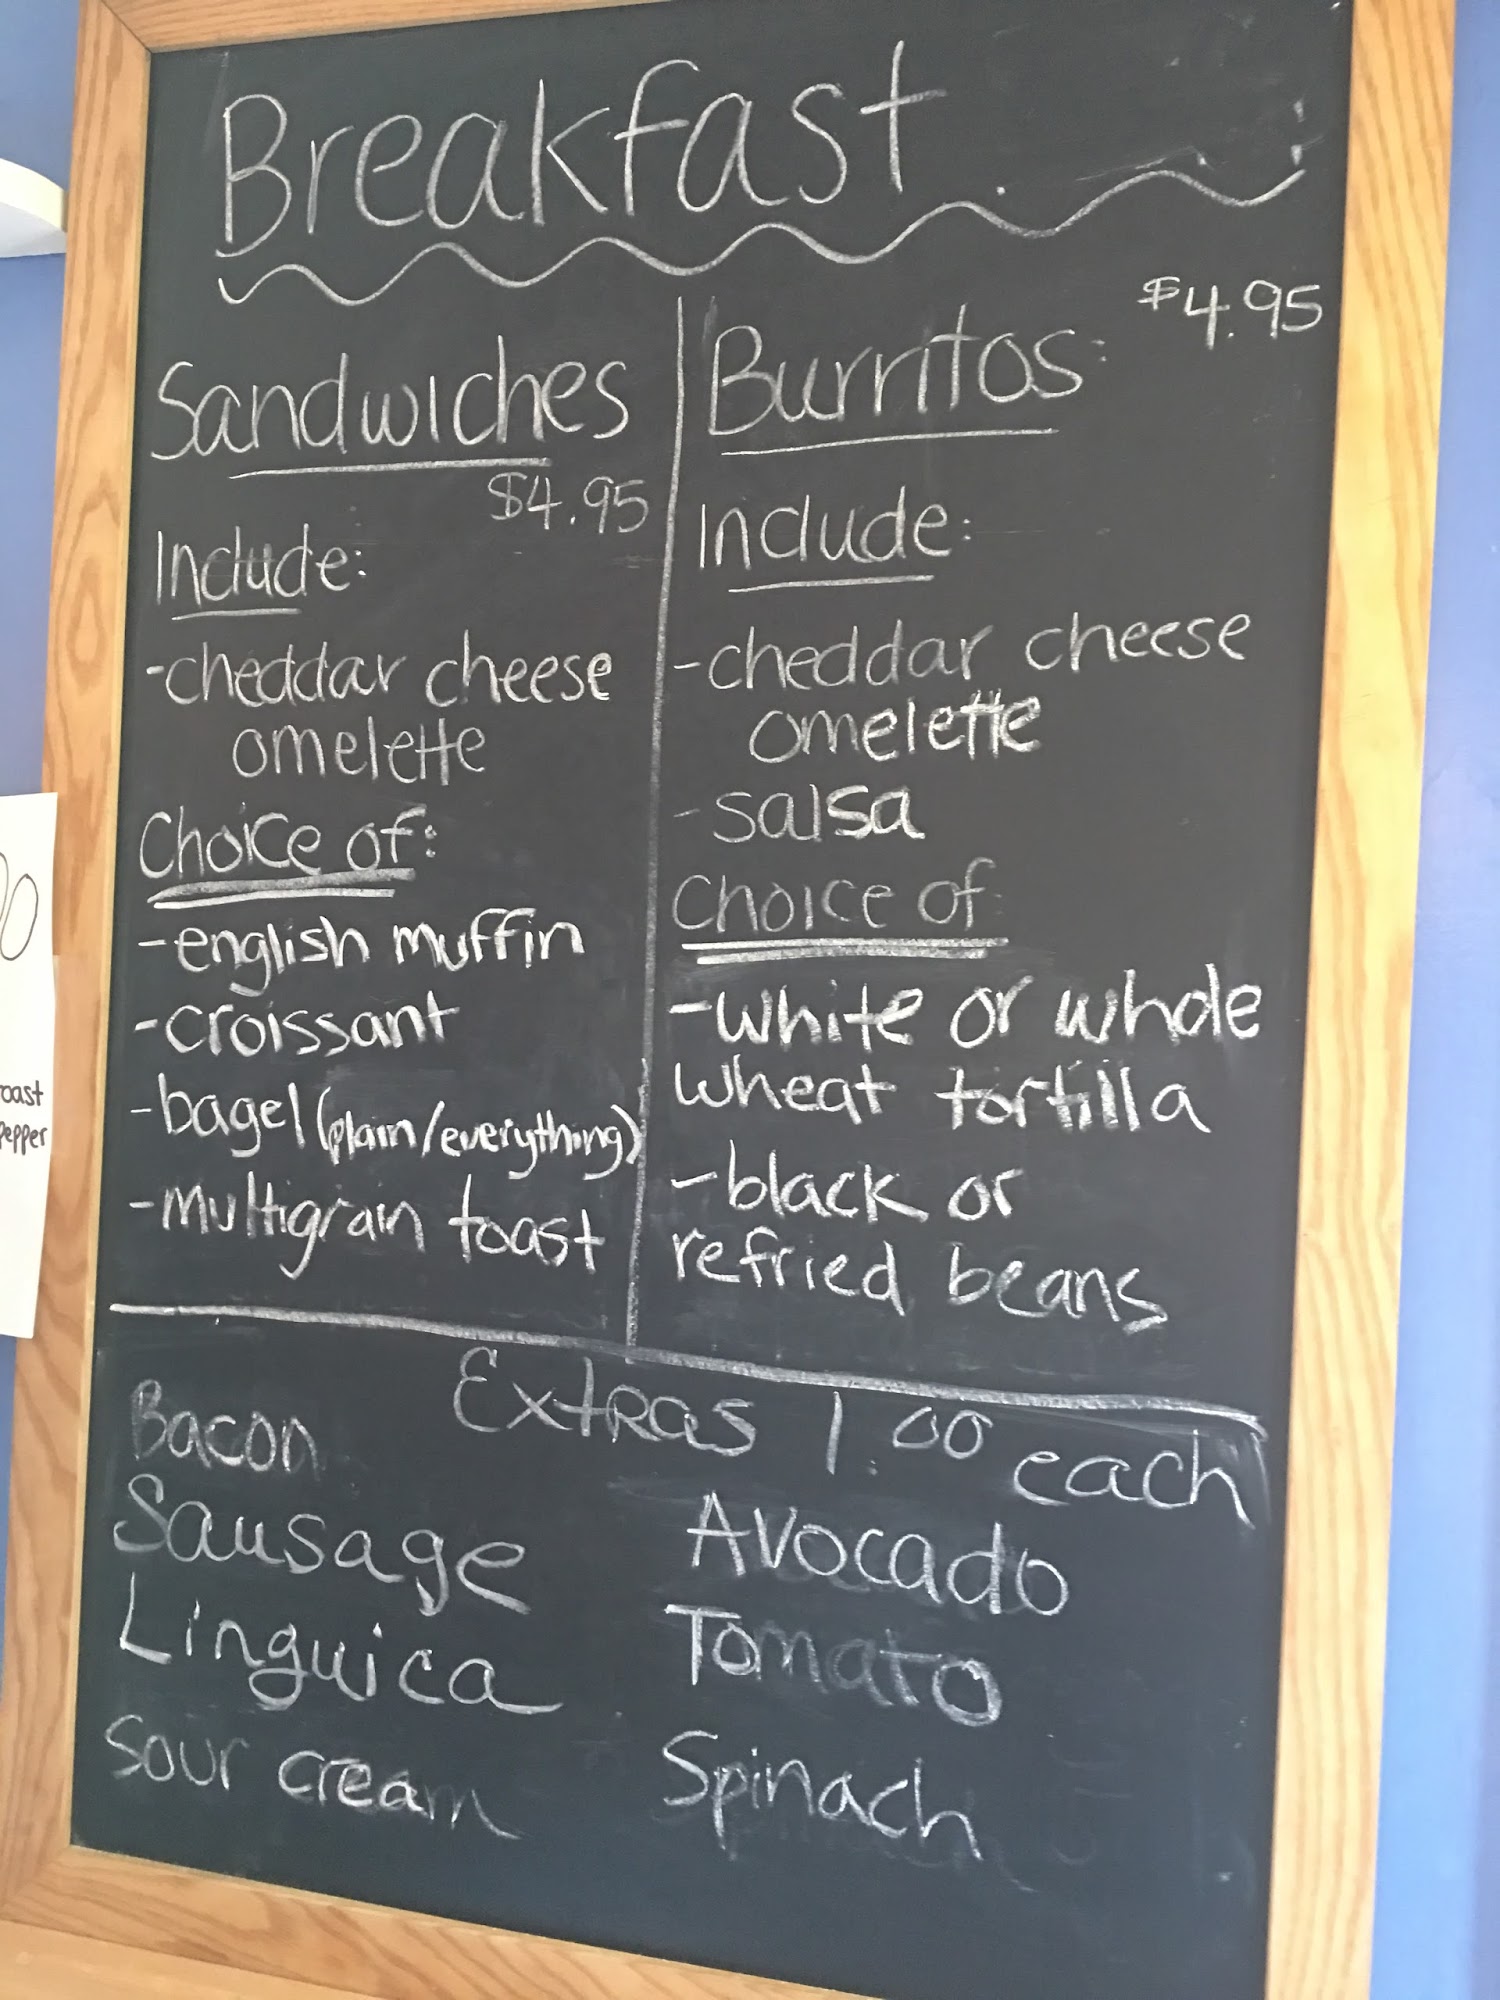 Breakfast
Sandwiches
$4.95
Include:
-cheddar cheese
omelette
Choice of:
-english muffin
-croissant
-bagel (plain/everything)
-multigrain toast
Burritos: $4.95
Include:
-cheddar cheese
omelette
-salsa
Choice of:
-white or whole
wheat tortilla
-black or
refried beans
Extras 1.00 each
Bacon
Sausage
Linguica
Sour cream
Avocado
Tomato
Spinach
pepper